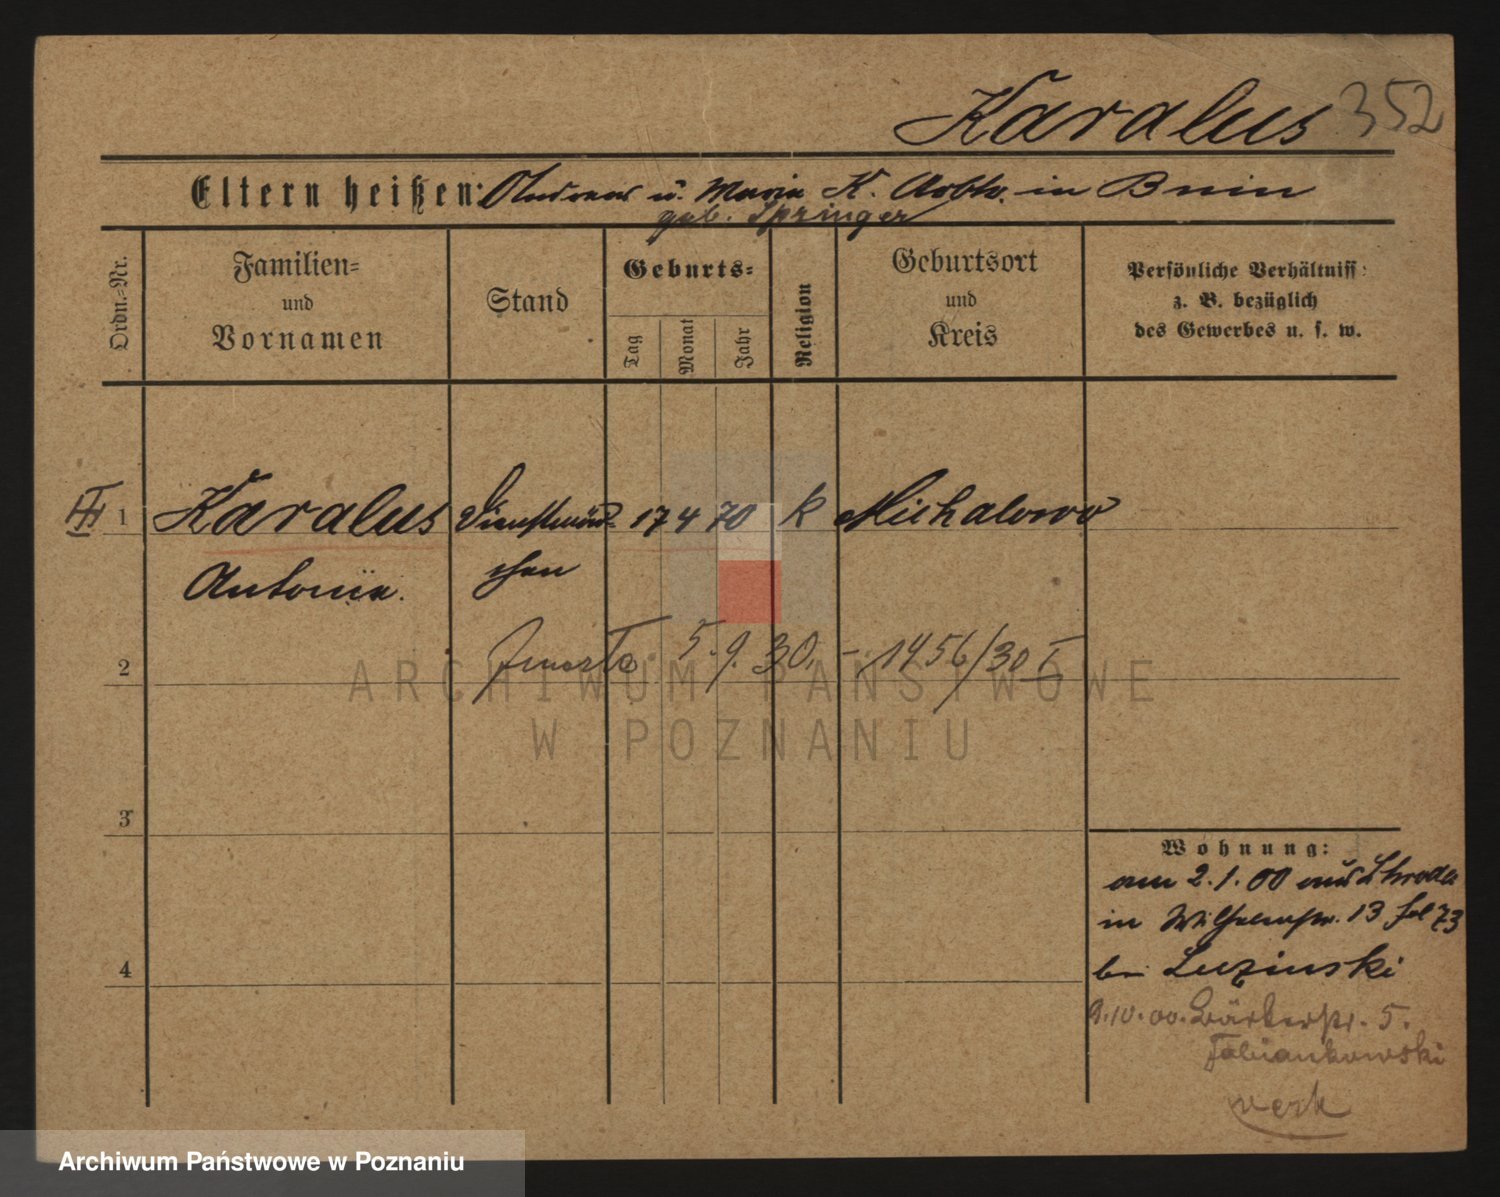 Karalus 352
Eltern heißen: Andreas u. Maria K. Arbtr. in Bnin
geb. Springer
Ordn.=Nr.
Familien=
und
Vornamen
Stand
Geburts=
Tag
Monat
Jahr
Religion
Geburtsort
und
Kreis
Persönliche Verhältniss:
z. B. bezüglich
des Gewerbes u. s. w.
III 1 Karalus Dienstmäd- 17 4 70 k Michalowo
Antonie. chen
2 zmarła 5.9.30. - 1456/30 I
3
4
Wohnung:
am 2.1.00 aus Schroda
in Wilhelmstr. 13 fol 73
bei Luzinski
9.10.00. Bäckerstr. 5.
Fabiankowski
verk
ARCHIWUM PAŃSTWOWE
W POZNANIU
Archiwum Państwowe w Poznaniu